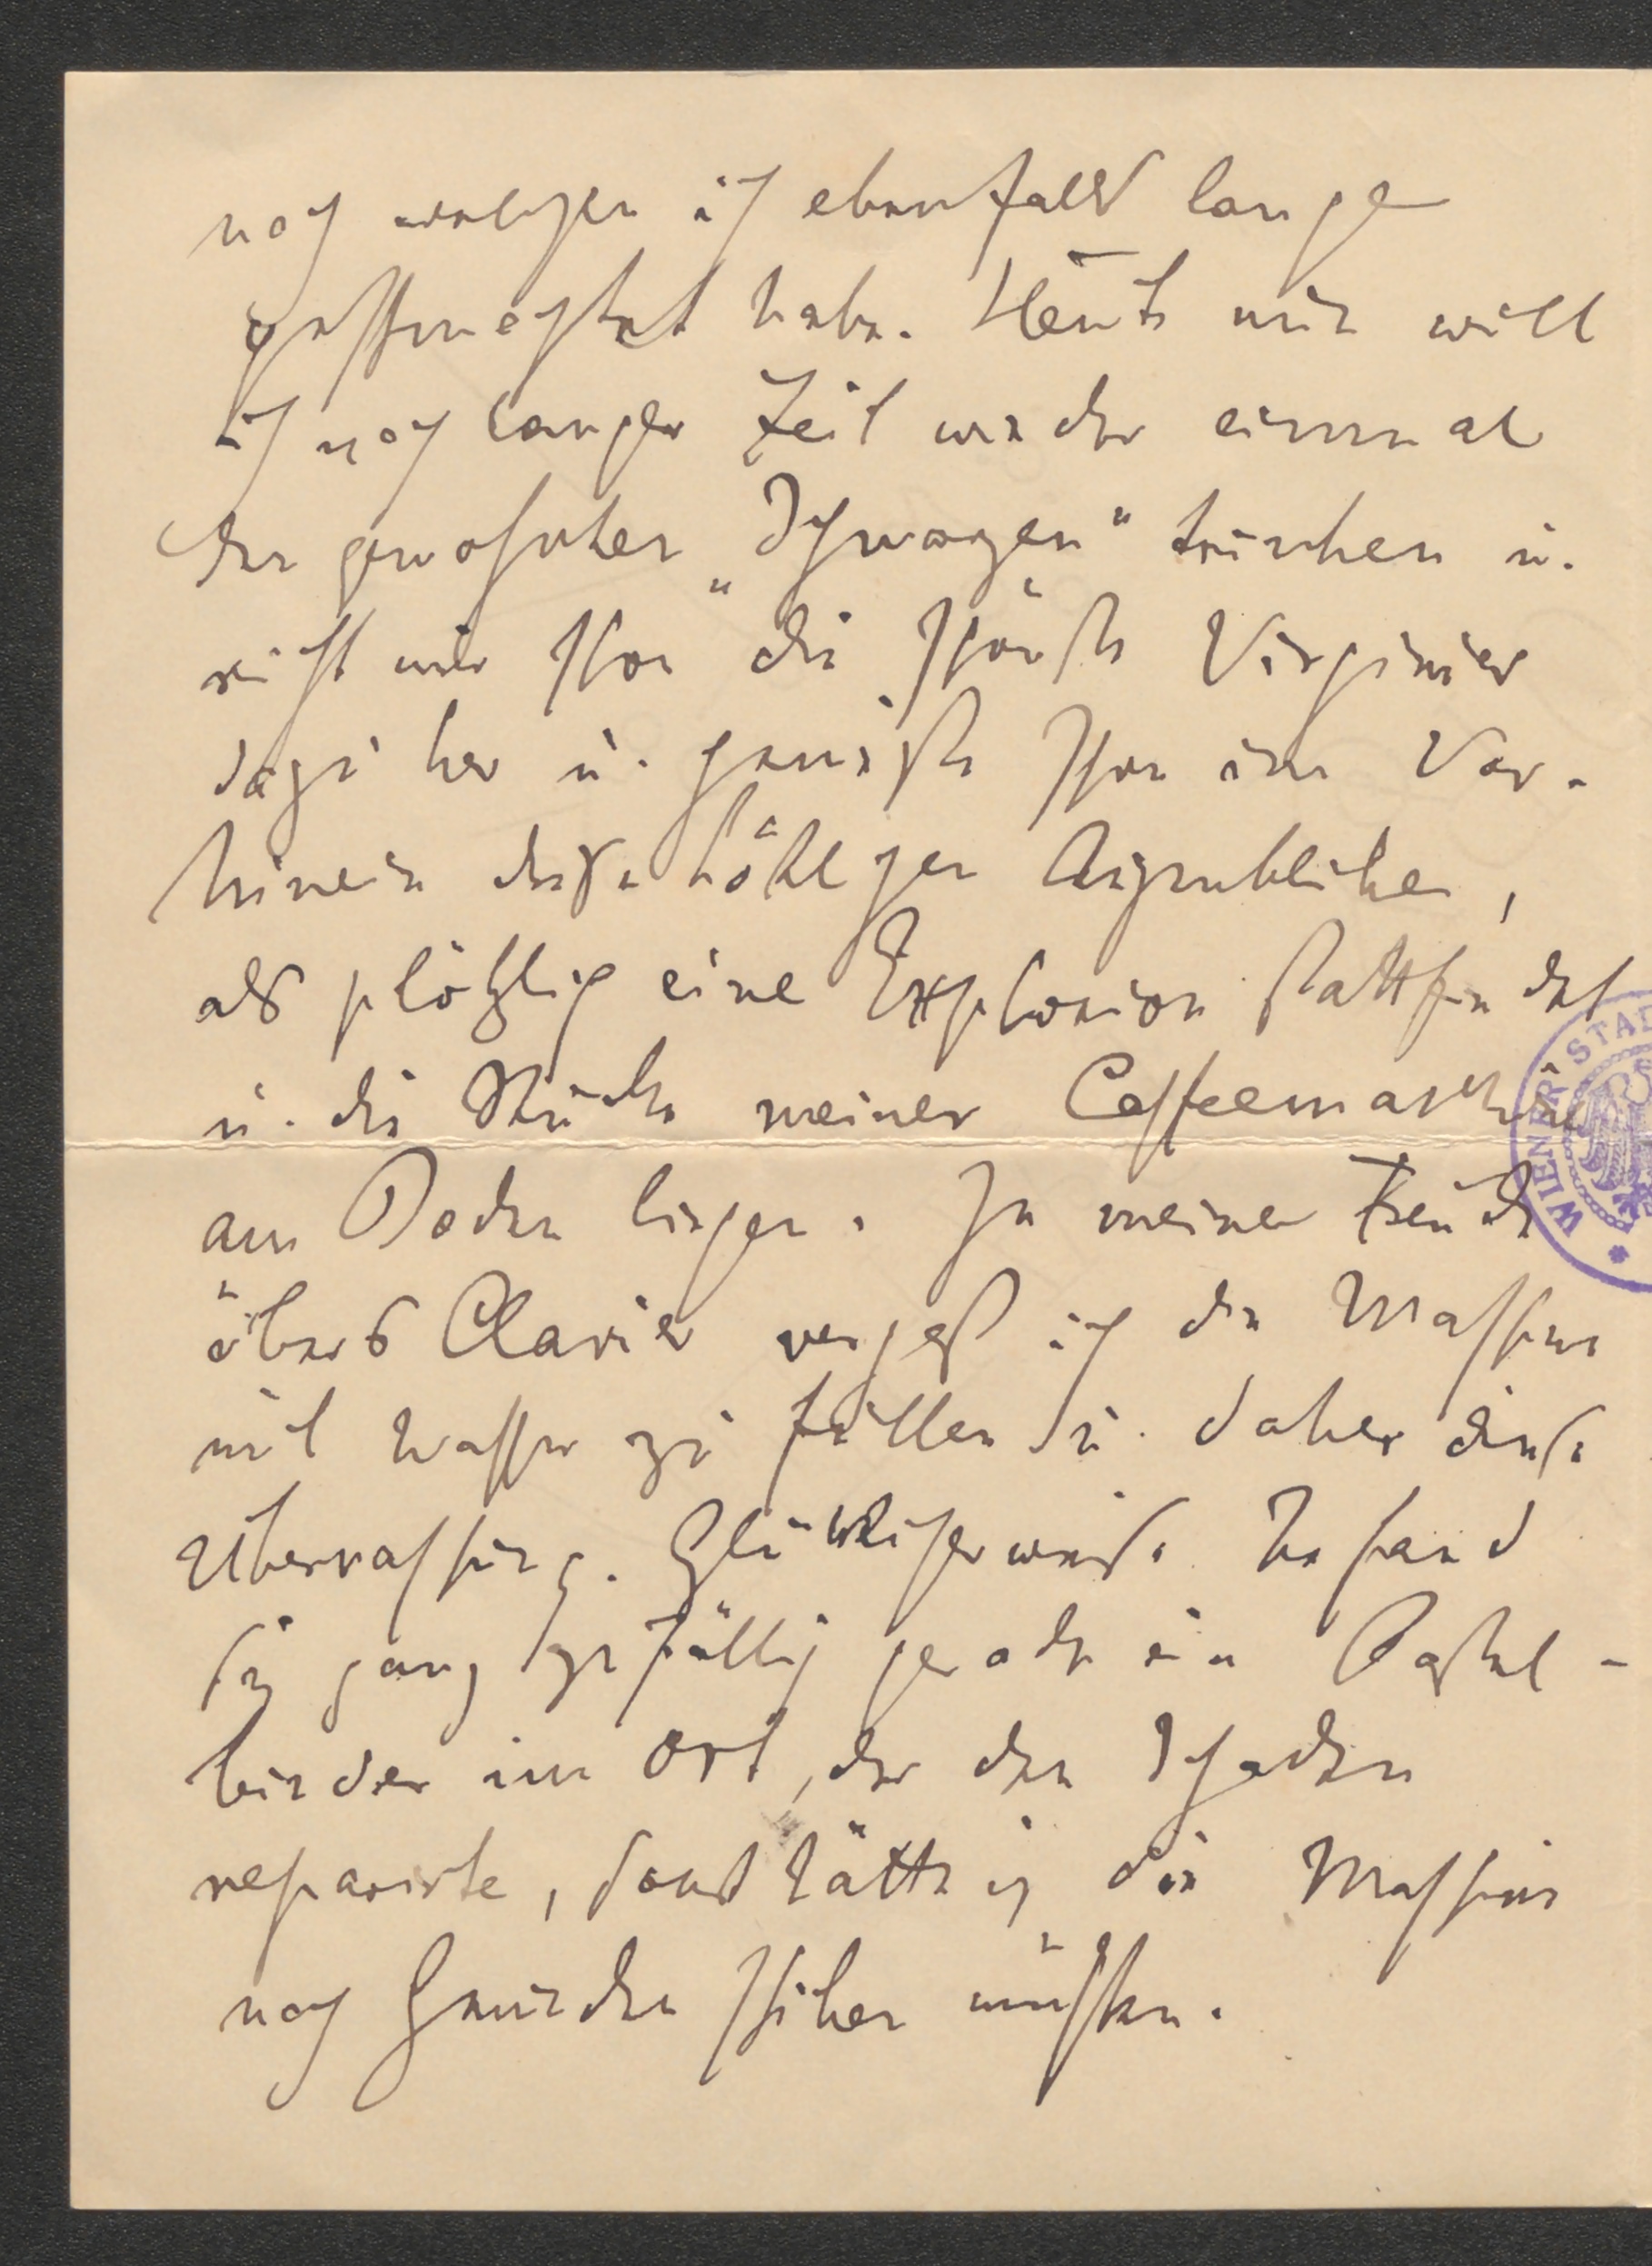 nach welchen ich ebenfalls lange
geschmachtet habe. Heute nun will
ich nach langer Zeit wieder einmal
den gewohnten „Schwarzen“ trinken u.
richt mir schon die schönste Virginier
dazu her u. genieße schon im Vor-
hinein diese köstlichen Augenblicke,
als plötzlich eine Explosion stattfindet
u. die Stücke meiner Caffeemaschine
am Boden liegen. In meiner Freude
übers Clavier vergaß ich die Maschine
mit Wasser zu füllen u. daher diese
Überraschung. Glücklicherweise befand
sich ganz zufällig gerade ein Rastel-
binder im Ort, der den Schaden
reparirte, sonst hätte ich die Maschine
nach Gmunden schicken müssen.
WIENER STAD